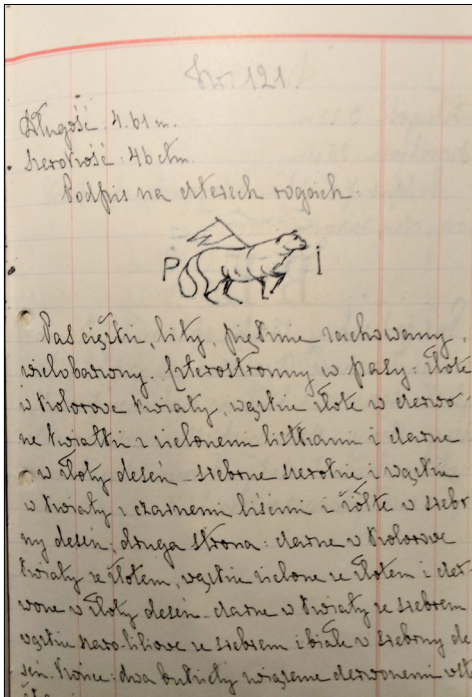 No. 121.
Długość: 4.61 m.
Szerokość: 46 ctm.
Podpis na czterech rogach.
P I
Pas ciężki, lity, pięknie zachowany,
wielobarwny. Czterostronny w pasy: złote
w kolorowe kwiaty, wązkie złote w czerwo-
ne kwiatki z zielonemi listkami i czarne
w złoty deseń – srebrne szerokie i wązkie
w kwiaty z czarnemi liśćmi i żółte w srebr
ny deseń; druga strona: czarne w kolorowe
kwiaty ze złotem, wązkie zielone ze złotem i czer-
wone w złoty deseń – czarne w kwiaty ze srebrem
wązkie szaro-liliowe ze srebrem i białe w srebrny de
seń. Końce: dwa bukiety wiązane czerwonemi wst